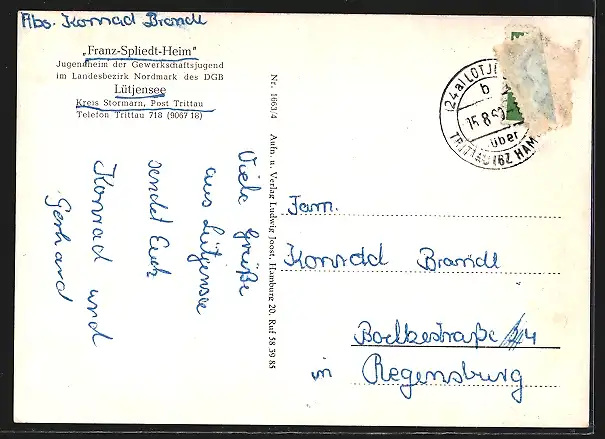 Abs. Konrad Brandl
„Franz-Spliedt-Heim"
Jugendheim der Gewerkschaftsjugend
im Landesbezirk Nordmark des DGB
Lütjensee
Kreis Stormarn, Post Trittau
Telefon Trittau 718 (9067 18)
Viele Grüße
aus Lütjensee
sendet Euch
Konrad und
Gerhard
Nr. 1663/4 Aufn. u. Verlag Ludwig Joost, Hamburg 20. Ruf 58 39 85
(24a) LÜTJ
b
15.8.
über
TRITTAU (BZ HAM
Fam.
Konrad Brandl
Boelkestraße 4
in Regensburg